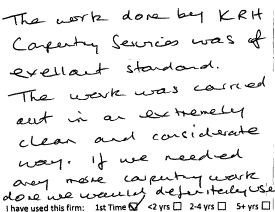 The work done by KRH
Carpentry Services was of
exellant standard.
The work was carried
out in an extremely
clean and considerate
way. If we needed
any more carpentry work
done we would definitely use
I have used this firm: 1st Time ☑ <2 yrs ☐ 2-4 yrs ☐ 5+ yrs ☐